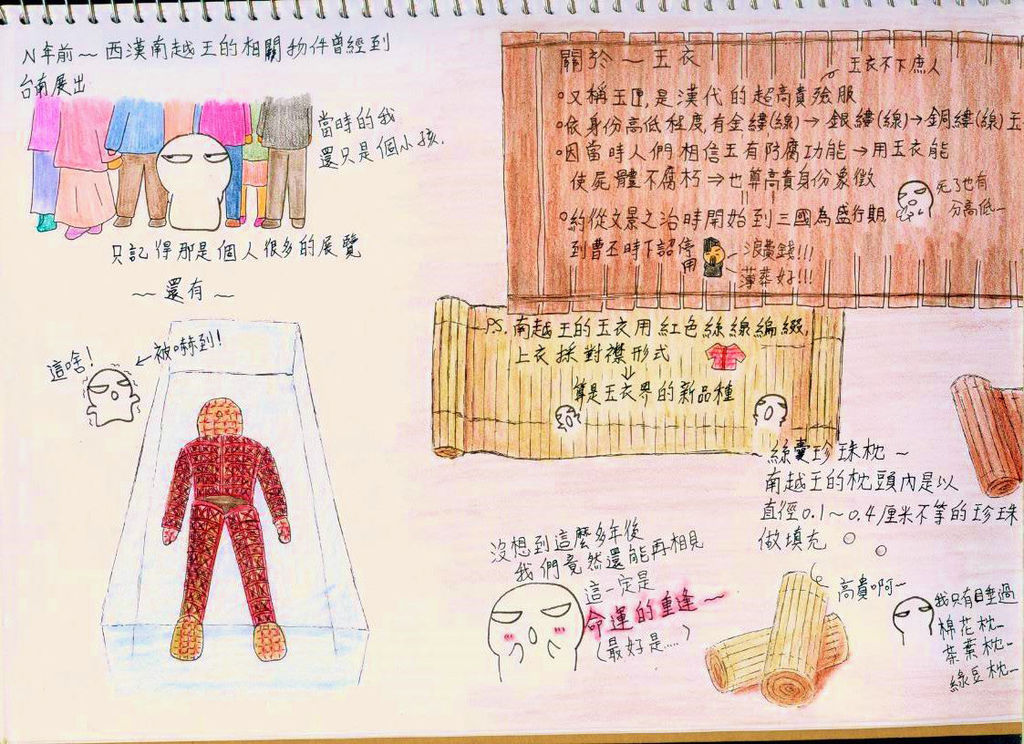 N年前～西漢南越王的相關物件曾經到
台南展出
當時的我
還只是個小孩.
只記得那是個人很多的展覽
～還有～
這啥!
←被嚇到!
關於～玉衣
玉衣不下庶人
又稱玉匣,是漢代的超高貴殮服
依身份高低程度,有金縷(線)→銀縷(線)→銅縷(線)玉
因當時人們相信玉有防腐功能→用玉衣能
使屍體不腐朽⇒也尊高貴身份象徵
死了也有
分高低～
約從文景之治時開始到三國為盛行期
到曹丕時下詔停
用
浪費錢!!!
薄葬好!!!
P.S. 南越王的玉衣用紅色絲線編綴
上衣採對襟形式
↓
算是玉衣界的新品種
絲囊珍珠枕～
南越王的枕頭內是以
直徑0.1～0.4厘米不等的珍珠
做填充
高貴啊～
我只有睡過
棉花枕～
茶葉枕～
綠豆枕～
沒想到這麼多年後
我們竟然還能再相見
這一定是
命運的重逢～
(最好是....)